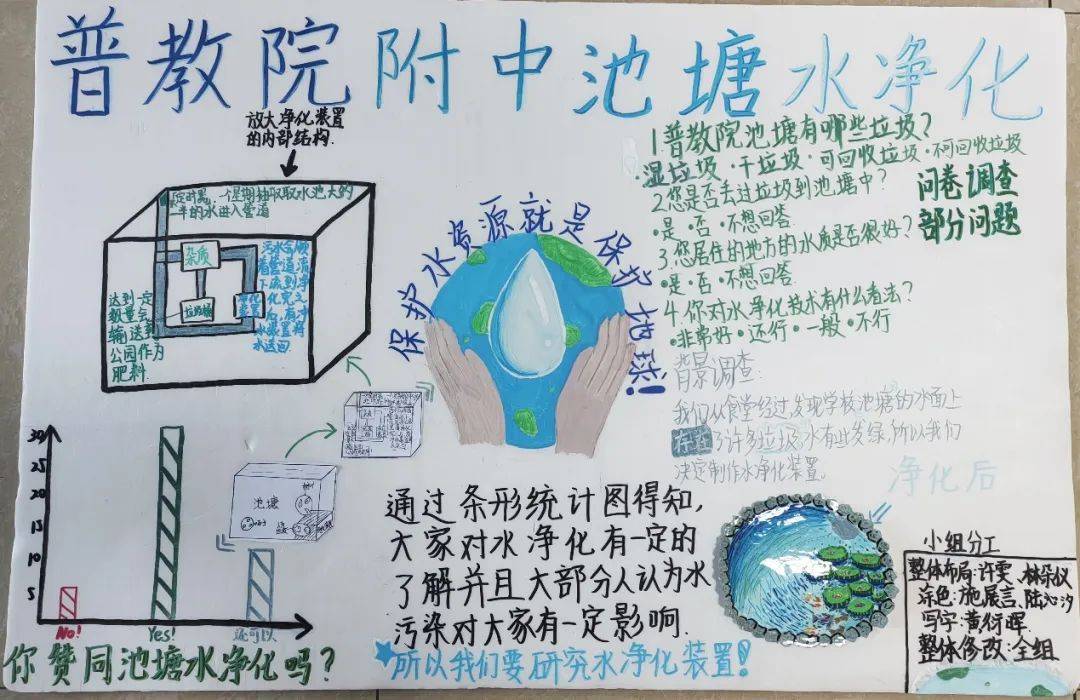 普教院附中池塘水净化
放大净化装置
的内部结构.
定时器,一个星期抽取水池大约
一半的水进入管道
杂质
垃圾桶
净化
装置
达到一定
数量会
输送到
公园作为
肥料.
保护水资源就是保护地球!
1.普教院池塘有哪些垃圾?
·湿垃圾·干垃圾·可回收垃圾·不可回收垃圾
2.您是否丢过垃圾到池塘中?
·是·否·不想回答
3.您居住的地方的水质是否很好?
·是·否·不想回答
4.你对水净化技术有什么看法?
·非常好·还行·一般·不行
问卷调查
部分问题
背景调查:
我们从食堂经过,发现学校池塘的水面上
存在了许多垃圾,水有些发绿,所以我们
决定制作水净化装置。
净化后
池塘
30
25
20
15
10
5
No!
Yes!
还可以
你赞同池塘水净化吗?
通过条形统计图得知,
大家对水净化有一定的
了解并且大部分人认为水
污染对大家有一定影响.
所以我们要研究水净化装置!
小组分工
整体布局:许雯、林朵仪
涂色:施展言、陆沁汐
写字:黄衍晖
整体修改:全组